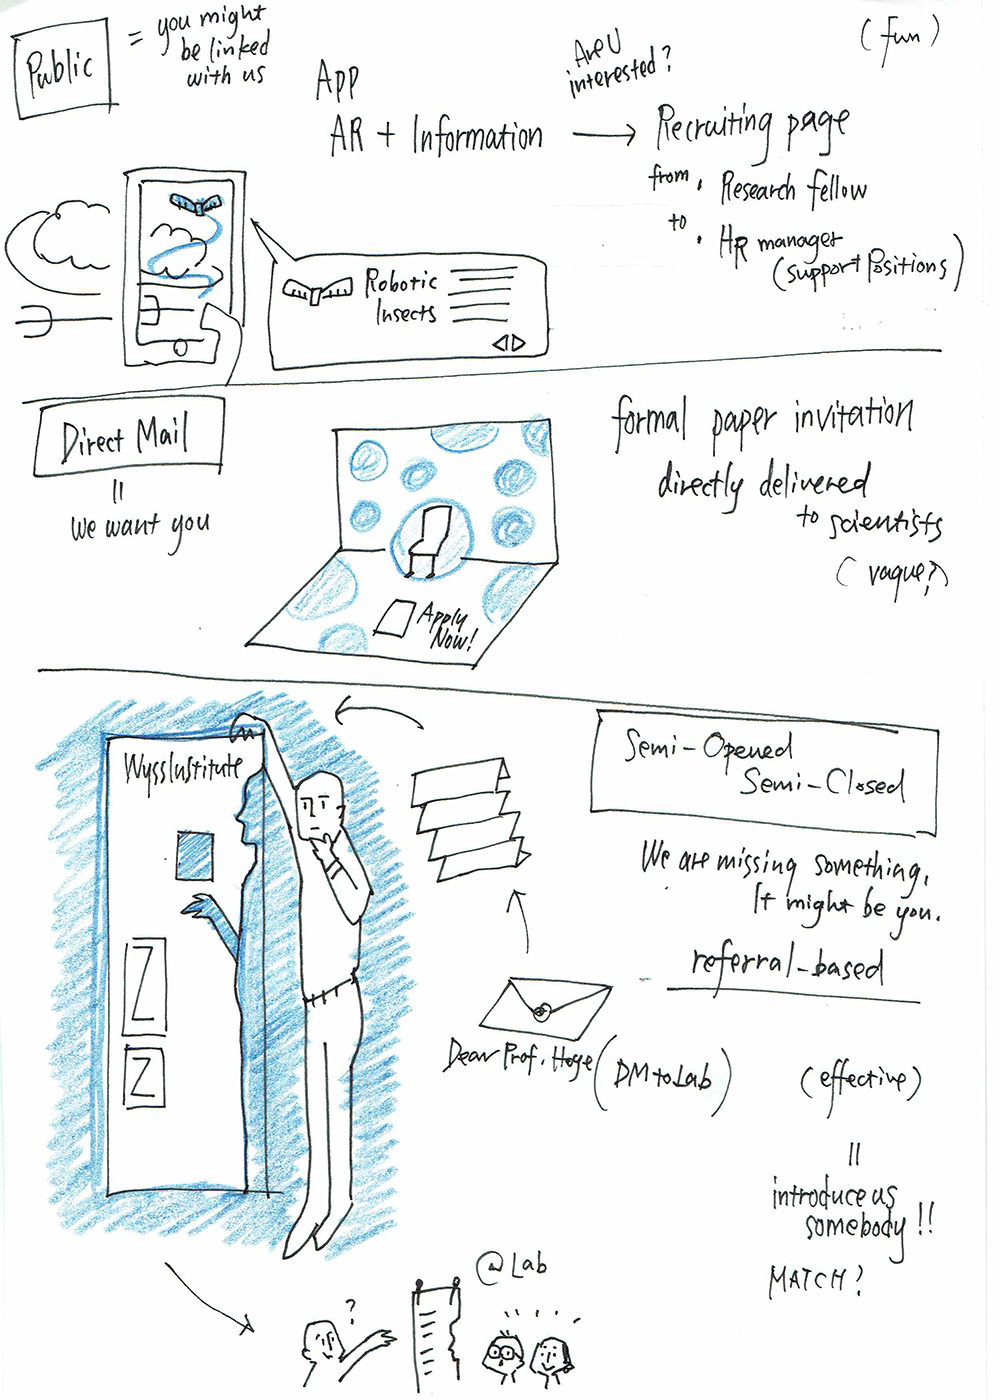 Public
= you might
be linked
with us
App
AR + Information
Are U
interested?
→ Recruiting page
(fun)
from • Research fellow
to • HR manager
(support positions)
Robotic
Insects
Direct Mail
=
we want you
Apply
Now!
formal paper invitation
directly delivered
to scientists
(vague?)
Semi-Opened
Semi-Closed
Wyss Institute
We are missing something,
It might be you.
referral-based
Dear Prof. Hoge
(DM to Lab)
(effective)
=
introduce us
somebody!!
MATCH?
@Lab
?